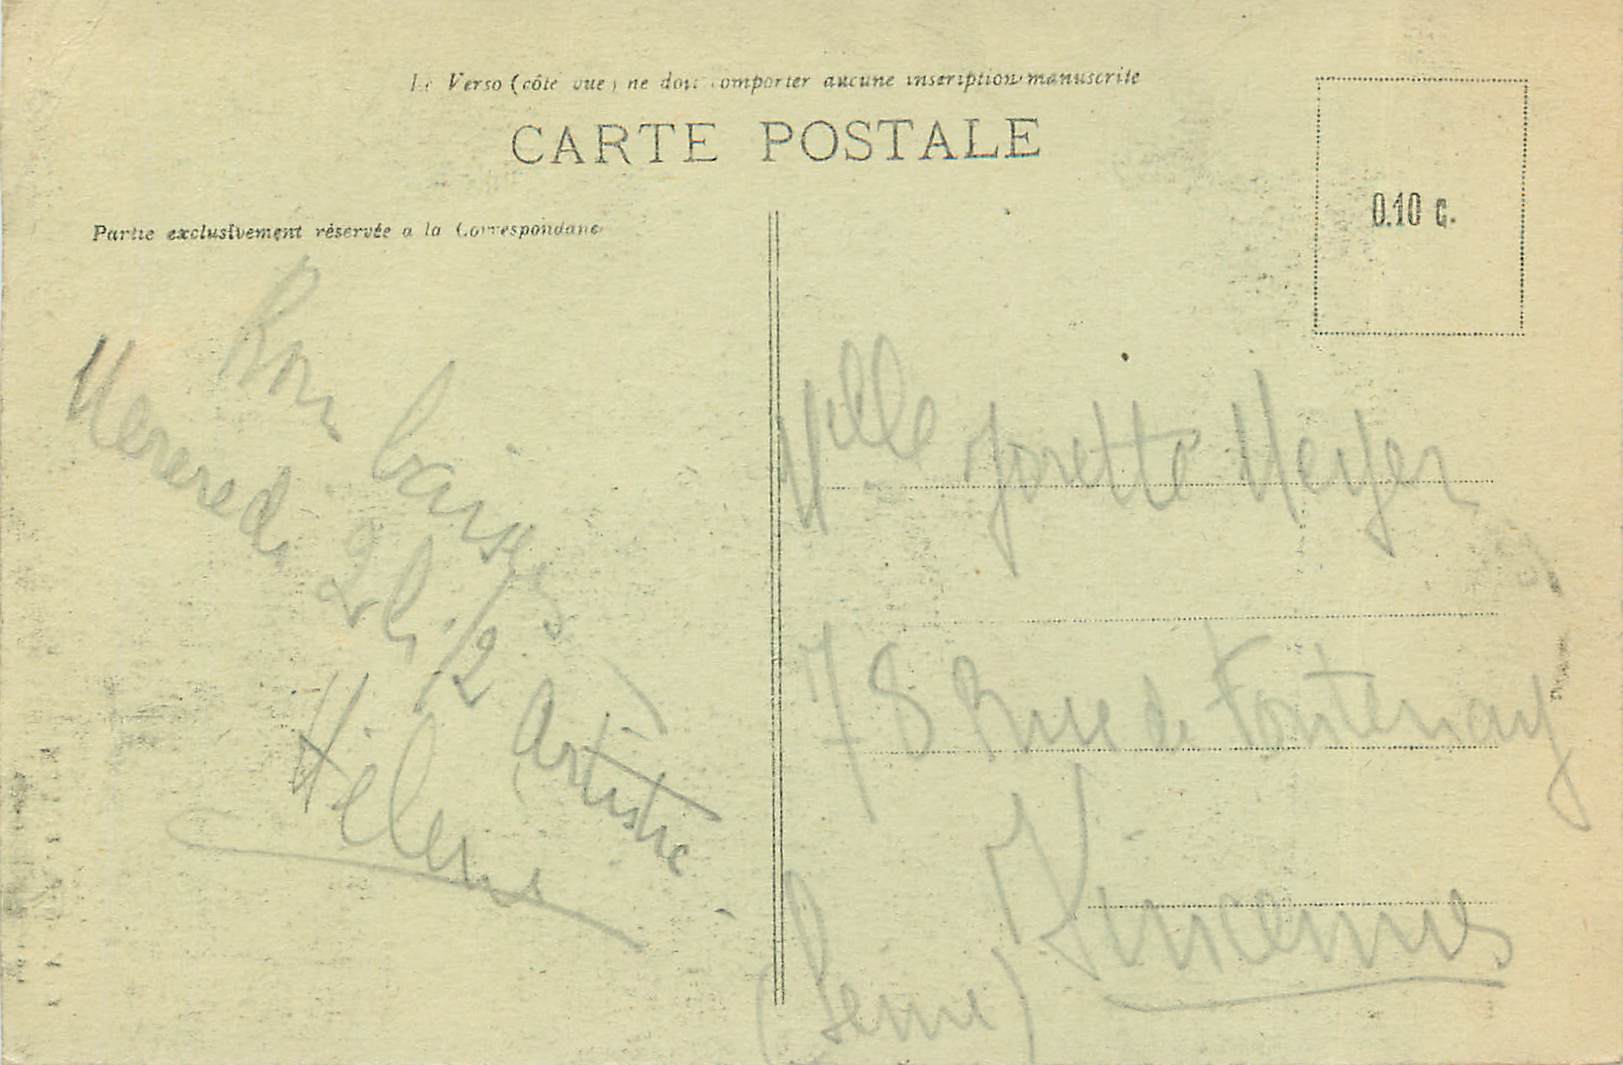 Le Verso (côté vue) ne doit comporter aucune inscription manuscrite
CARTE POSTALE
0.10 c.
Partie exclusivement réservée a la Correspondance
Bon baisers
Mercredi 2h 1/2 Artistic
Hélène
Mlle Yorette Meyer
78 Rue de Fontenay
Vincennes
(Seine)